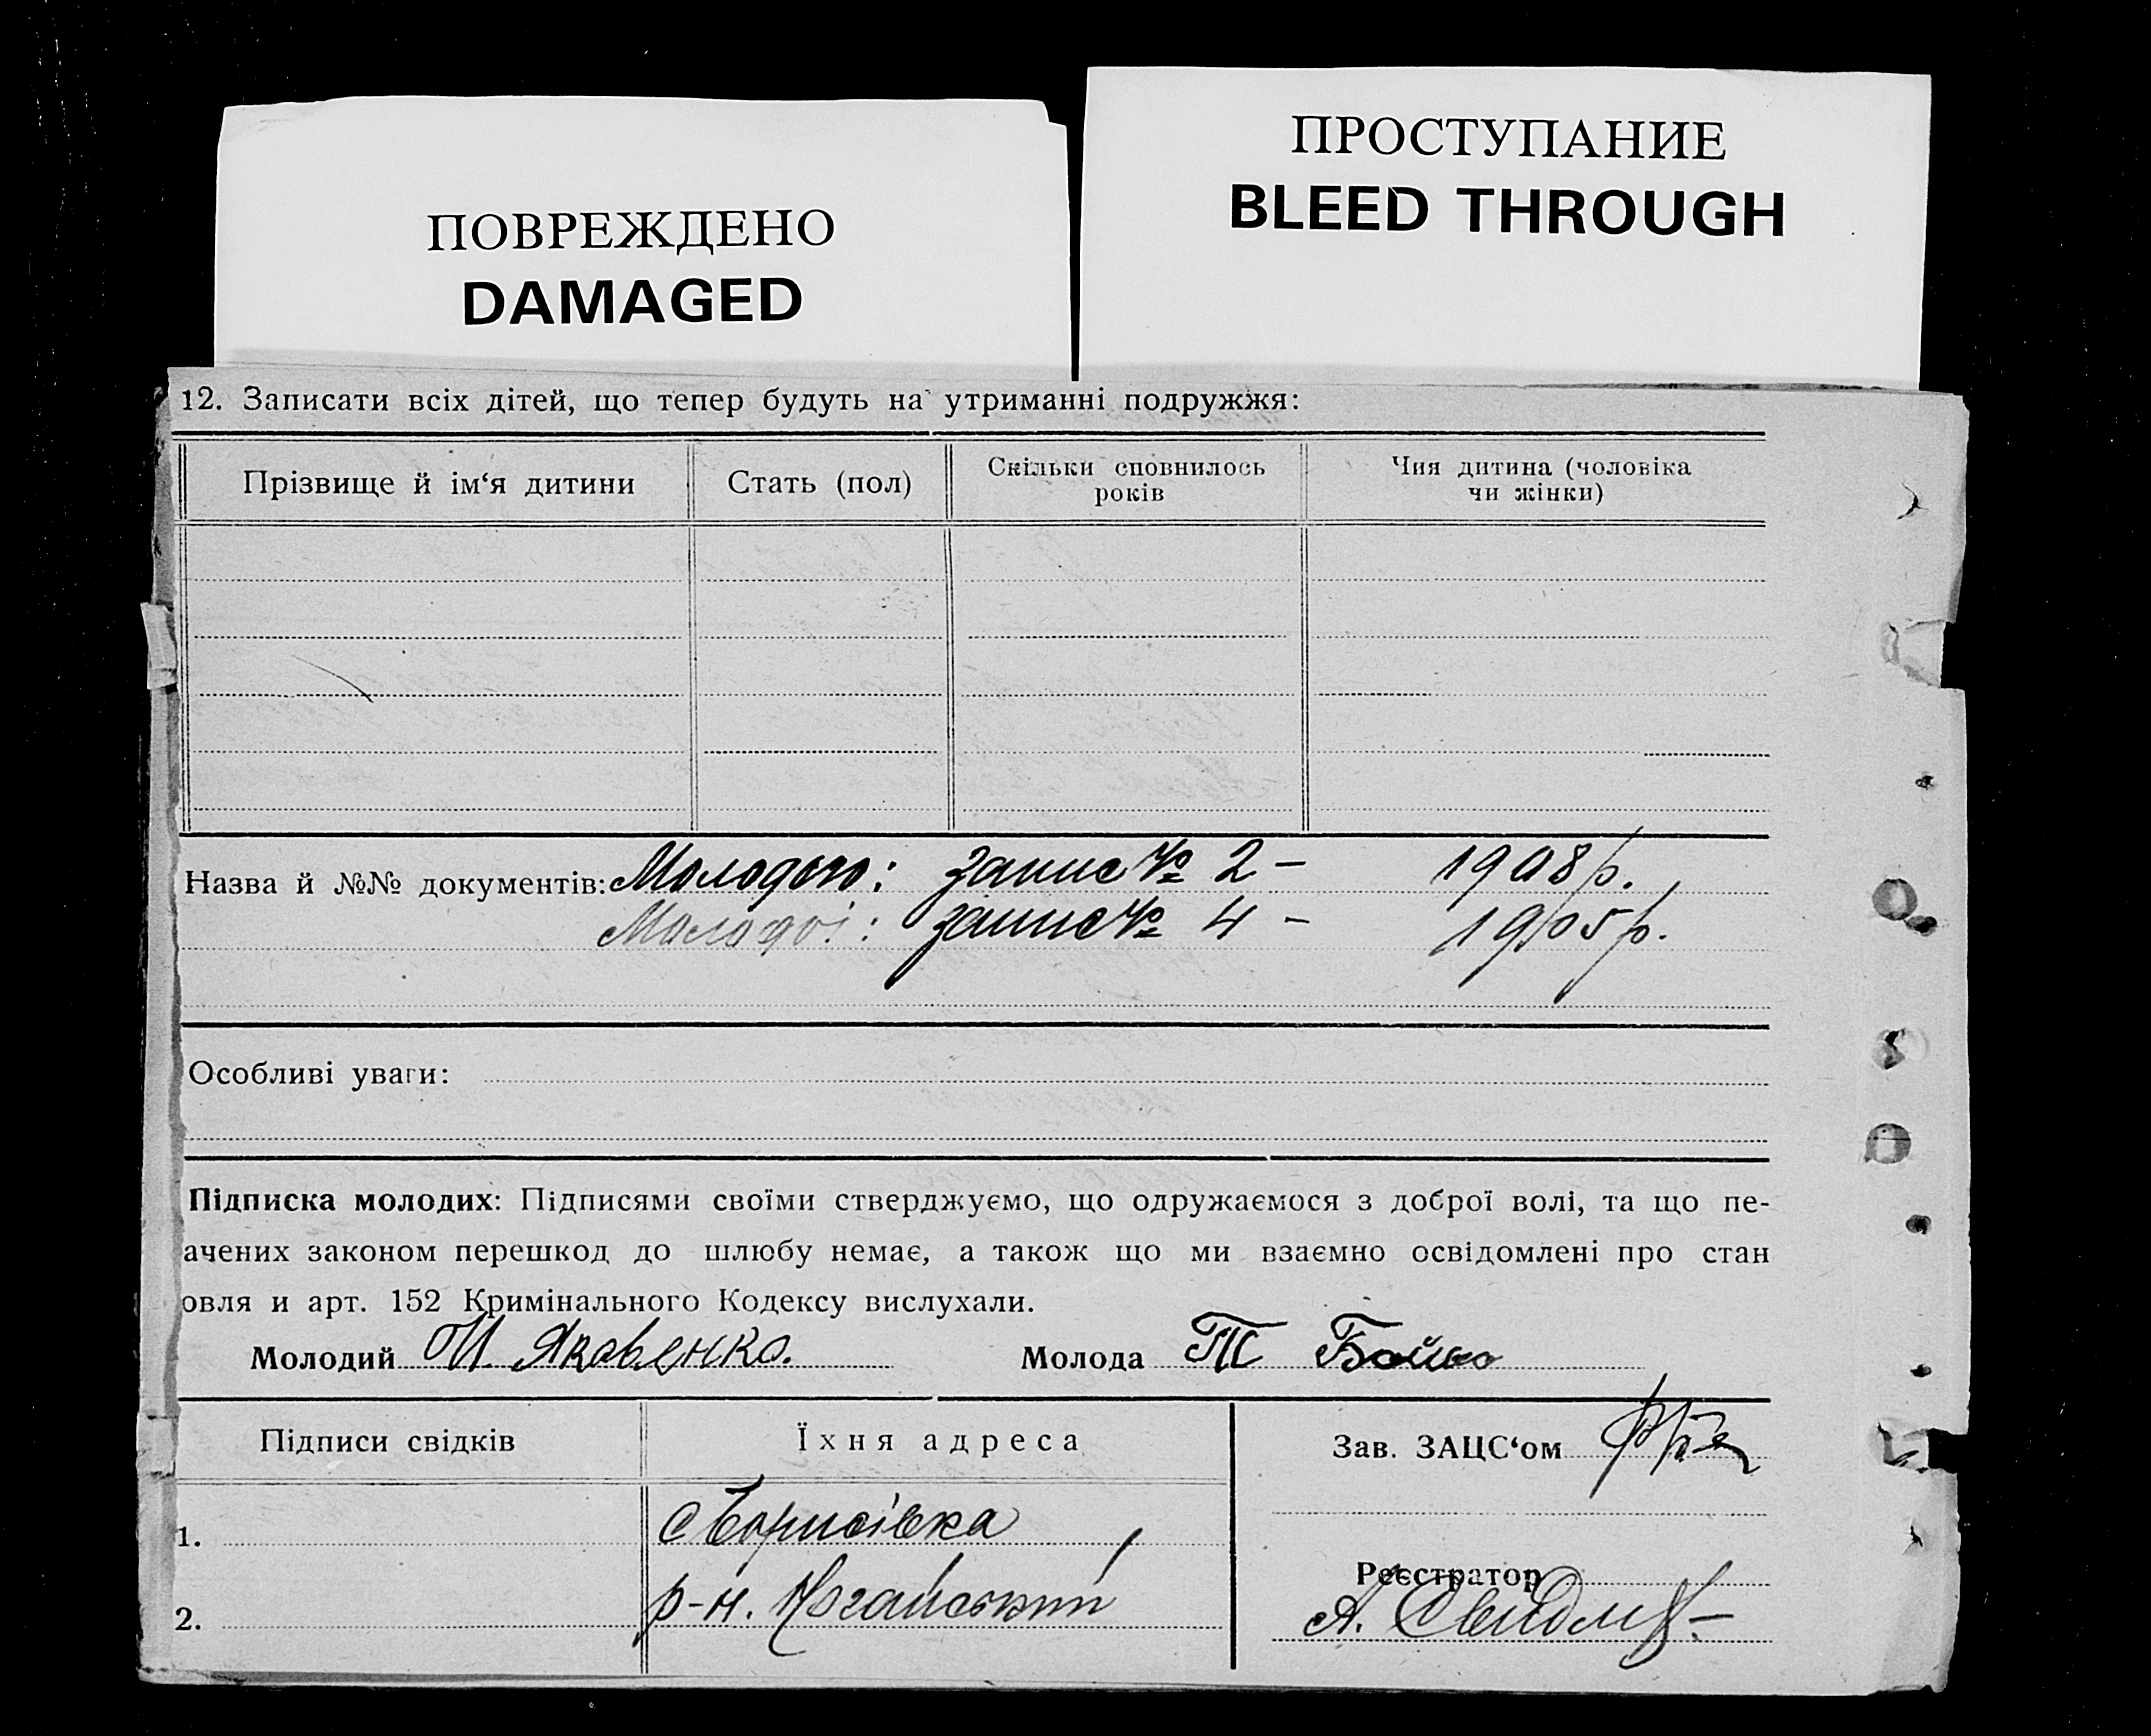 ПОВРЕЖДЕНО
DAMAGED
ПРОСТУПАНИЕ
BLEED THROUGH
12. Записати всіх дітей, що тепер будуть на утриманні подружжя:
Прізвище й ім‘я дитини
Стать (пол)
Скільки сповнилось
років
Чия дитина (чоловіка
чи жінки)
Назва й №№ документів: Молодого: запис № 2 – 1908 р.
Молодої: запис № 4 – 1905 р.
Особливі уваги:
Підписка молодих: Підписями своїми стверджуємо, що одружаємося з доброї волі, та що пе-
ачених законом перешкод до шлюбу немає, а також що ми взаємно освідомлені про стан
овля и арт. 152 Кримінального Кодексу вислухали.
Молодий И. Яковенко. Молода Т Бойко
Підписи свідків
Їхня адреса
Зав. ЗАЦС‘ом
1. с Борисівка,
р-н. Ногайський
2.
Реєстратор
А.